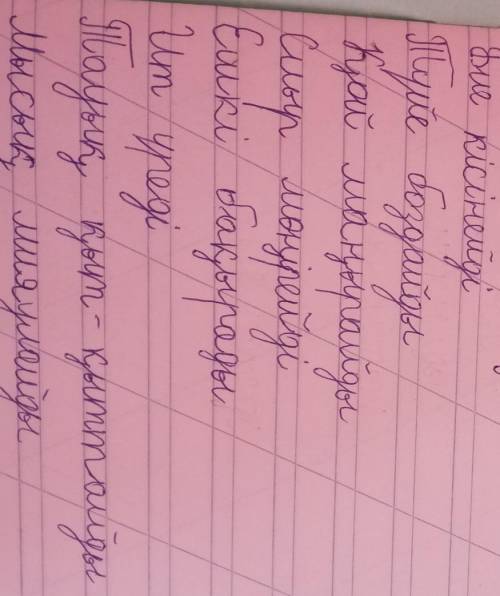 кісінейді
Түйе боздайды
Қой маңырайды
Сиыр мөңірейді
Ешкі бақырады
Ит үреді
Тауық қыт-қыттайды
Мысық мияулайды